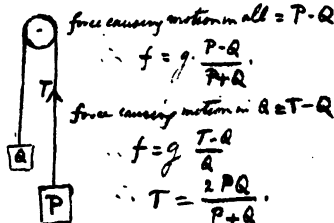 force causing motion in all = P-Q
∴ f = g. P-Q / P+Q.
T
force causing motion in Q = T-Q
∴ f = g T-Q / Q
Q
P
∴ T = 2PQ / P+Q.